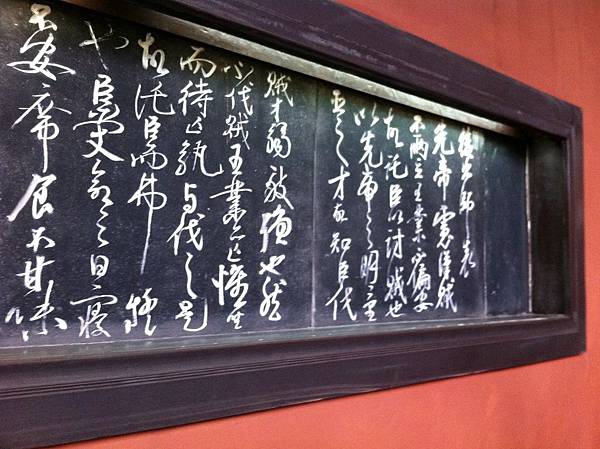 後出師表
先帝慮漢賊
不兩立王業不偏安
故託臣以討賊也
以先帝之明量
臣之才故知臣伐
賊才弱敵強也然
不伐賊王業亦亡惟坐
而待亡孰與伐之是
故託臣而弗疑
也臣受命之日寢
不安席食不甘味